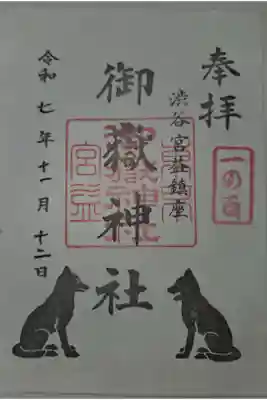 奉拝
一の酉
渋谷宮益鎮座
御嶽神社
令和七年十一月十二日
宮益